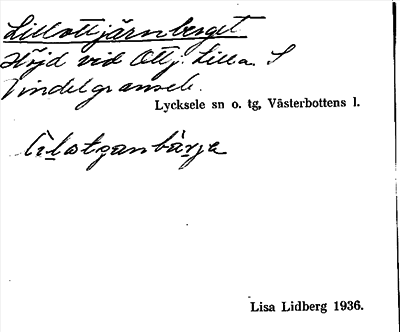 Lillottjärnberget
Höjd vid Ottj. Lilla S
Vindelgransele.
Lycksele sn o. tg, Västerbottens l.
Lisa Lidberg 1936.